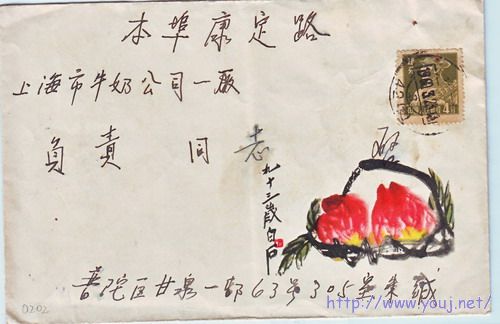 本埠康定路
上海市牛奶公司一厰
負責同志
啓
九十三歲白石
普陀区甘泉一邨63号305室朱缄
0202
http://www.youj.net/